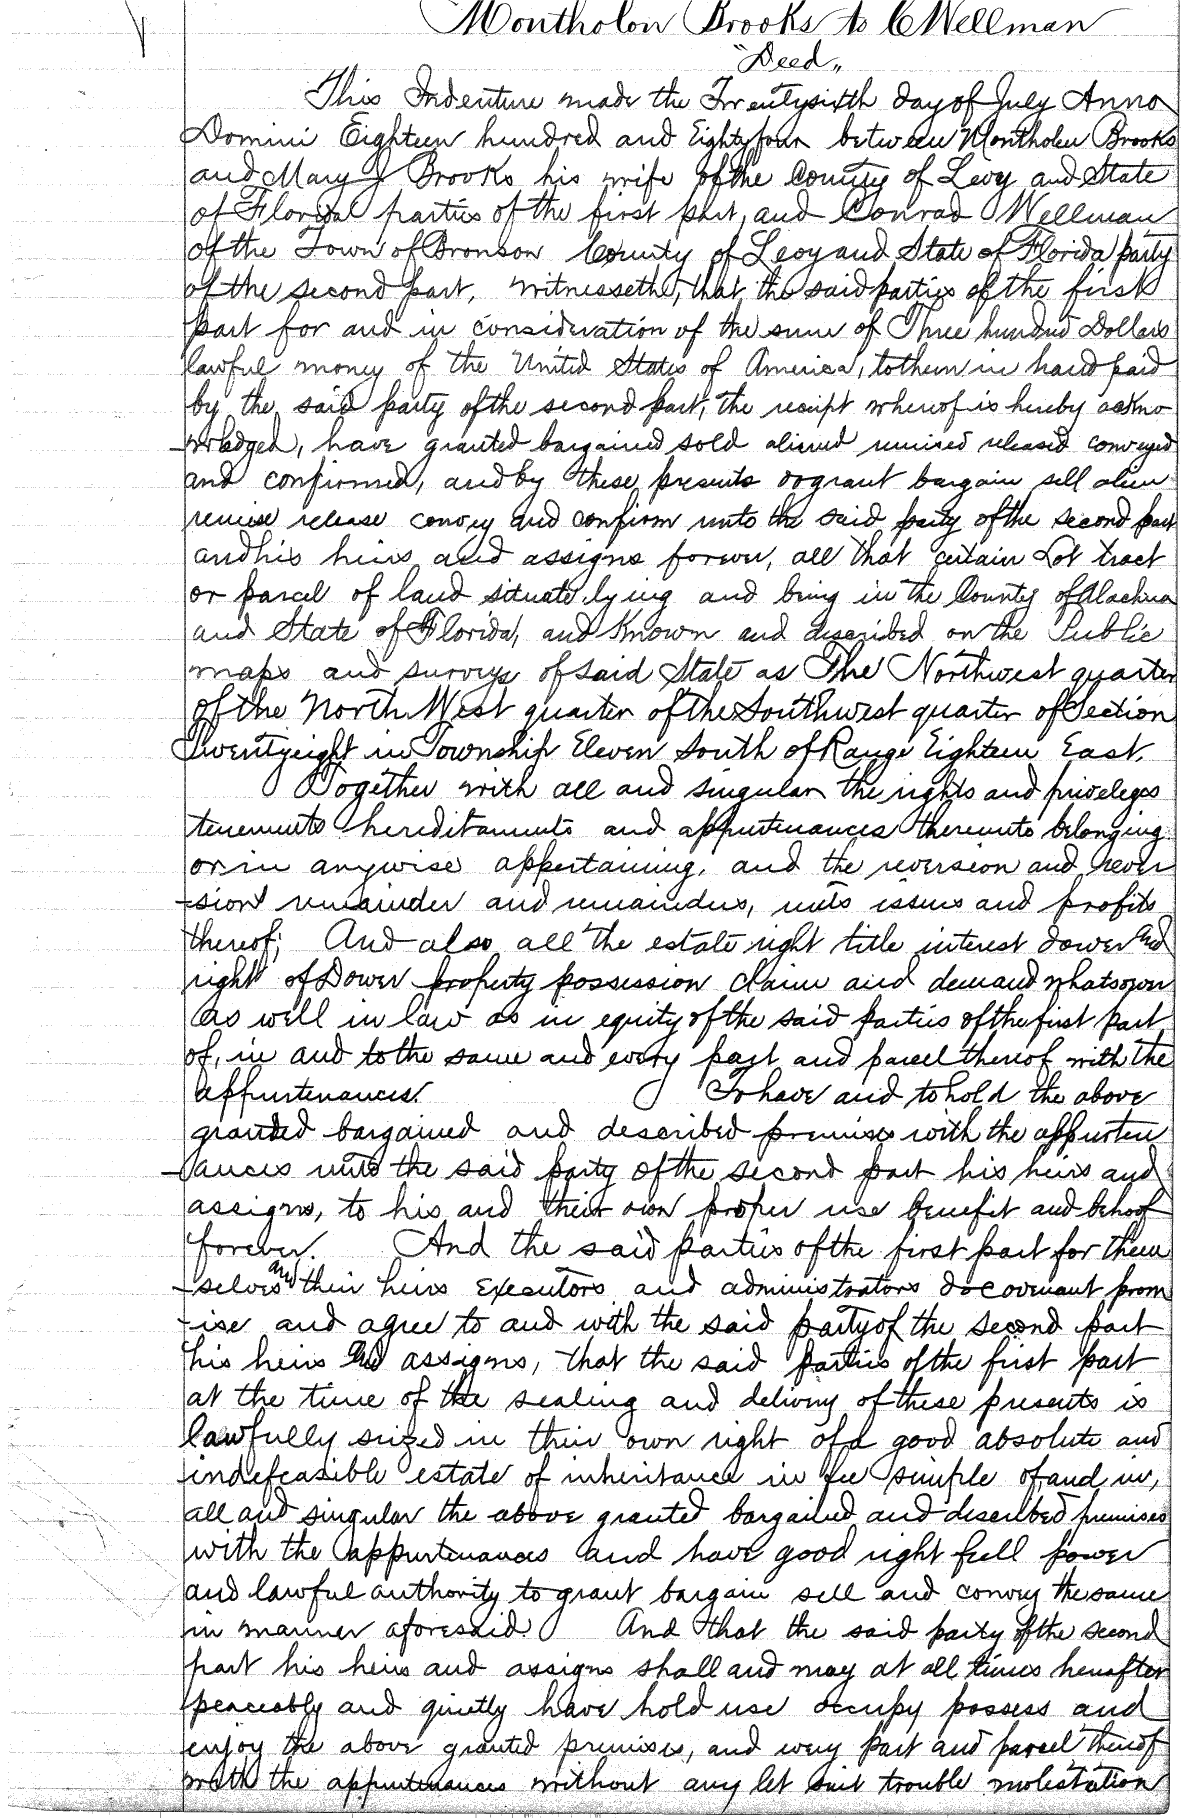 Montholon Brooks to C Wellman
"Deed"
This Indenture made the Twentysixth day of July Anno
Domini Eighteen hundred and Eightyfour between Montholon Brooks
and Mary J Brooks his wife of the County of Levy and State
of Florida parties of the first part, and Conrad Wellman
of the Town of Bronson County of Levy and State of Florida party
of the second part, witnesseth, that the said parties of the first
part for and in consideration of the sum of Three hundred Dollars
lawful money of the United States of America, to them in hand paid
by the said party of the second part, the receipt whereof is hereby ackno
-wledged, have granted bargained sold aliened remised released conveyed
and confirmed, and by these presents do grant bargain sell alien
remise release convey and confirm unto the said party of the second part
and his heirs and assigns forever, all that certain Lot tract
or parcel of land situate lying and being in the County of Alachua
and State of Florida, and Known and described on the Public
maps and surveys of said State as The Northwest quarter
of the North West quarter of the Southwest quarter of Section
Twentyeight in Township Eleven South of Range Eighteen East.
Together with all and singular the rights and priveleges
tenements hereditaments and appurtenances thereunto belonging
or in anywise appertaining, and the reversion and rever
-sions remainder and remainders, rents issues and profits
thereof; And also all the estate right title interest dower and
right of Dower property possession claim and demand whatsoever
as well in law as in equity of the said parties of the first part
of, in and to the same and every part and parcel thereof with the
appurtenances. To have and to hold the above
granted bargained and described premises with the appurten
-ances unto the said party of the second part his heirs and
assigns, to his and their own proper use benefit and behoof
forever. And the said parties of the first part for them
-selves and their heirs Executors and administrators do covenant prom
-ise and agree to and with the said party of the second part
his heirs and assigns, that the said parties of the first part
at the time of the sealing and delivery of these presents is
lawfully seized in their own right of a good absolute and
indefeasible estate of inheritance in fee simple of and in,
all and singular the above granted bargained and described premises
with the appurtenances and have good right full power
and lawful authority to grant bargain sell and convey the same
in manner aforesaid And that the said party of the second
part his heirs and assigns shall and may at all times hereafter
peaceably and quietly have hold use occupy possess and
enjoy the above granted premises, and every part and parcel thereof
with the appurtenances without any let suit trouble molestation